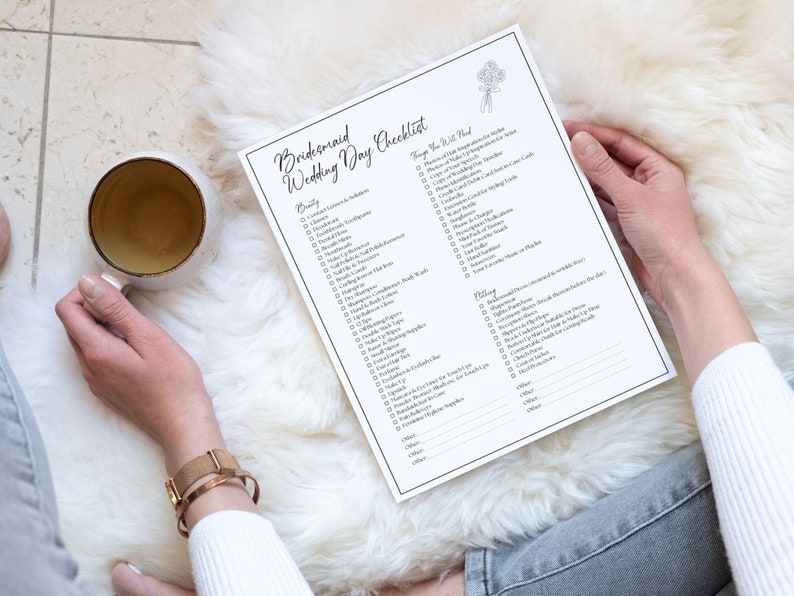 Bridesmaid
Wedding Day Checklist
Beauty
Contact Lenses & Solution
Glasses
Deodorant
Toothbrush, Toothpaste
Dental Floss
Breath Mints
Mouthwash
Make Up Remover
Nail Polish & Nail Polish Remover
Nail File & Tweezers
Brush/Comb
Curling Iron or Flat Iron
Hairspray
Dry Shampoo
Shampoo, Conditioner, Body Wash
Hand & Body Lotion
Lip Balm or Gloss
Q Tips
Oil Blotting Papers
Double Stick Tape
Make Up Wipes
Razor & Shaving Supplies
Small Mirror
Extra Earrings
Extra Hair Ties
Perfume
Eyelashes & Eyelash Glue
Make Up
Lipstick
Mascara & Eye Liner for Touch Ups
Powder, Bronzer, Blush etc. for Touch Ups
Bandaids Just In Case
Pain Relievers
Feminine Hygiene Supplies
Other:
Other:
Other:
Other:
Things You Will Need
Photos of Hair Inspiration for Stylist
Photos of Make Up Inspiration for Artist
Copy of Your Speech
Copy of Wedding Day Timeline
Photo Identification
Credit Card/Debit Card Just in Case Cash
Umbrella
Extension Cord for Styling Tools
Water Bottle
Sunglasses
Phone & Charger
Prescription Medications
Mini Pack of Tissues
Your Favorite Snack
Lint Roller
Hand Sanitizer
Sunscreen
Your Favorite Music or Playlist
Clothing
Bridesmaid Dress (steamed & wrinkle free)
Shapewear
Tights/Pantyhose
Ceremony Shoes (break them in before the day)
Reception Shoes
Slippers & Flip Flops
Bra & Underwear Suitable for Dress
Button Up Shirt for Hair & Make Up Time
Comfortable Outfit for Getting Ready
Clutch Purse
Coat or Jacket
Heel Protectors
Other:
Other:
Other:
Other: